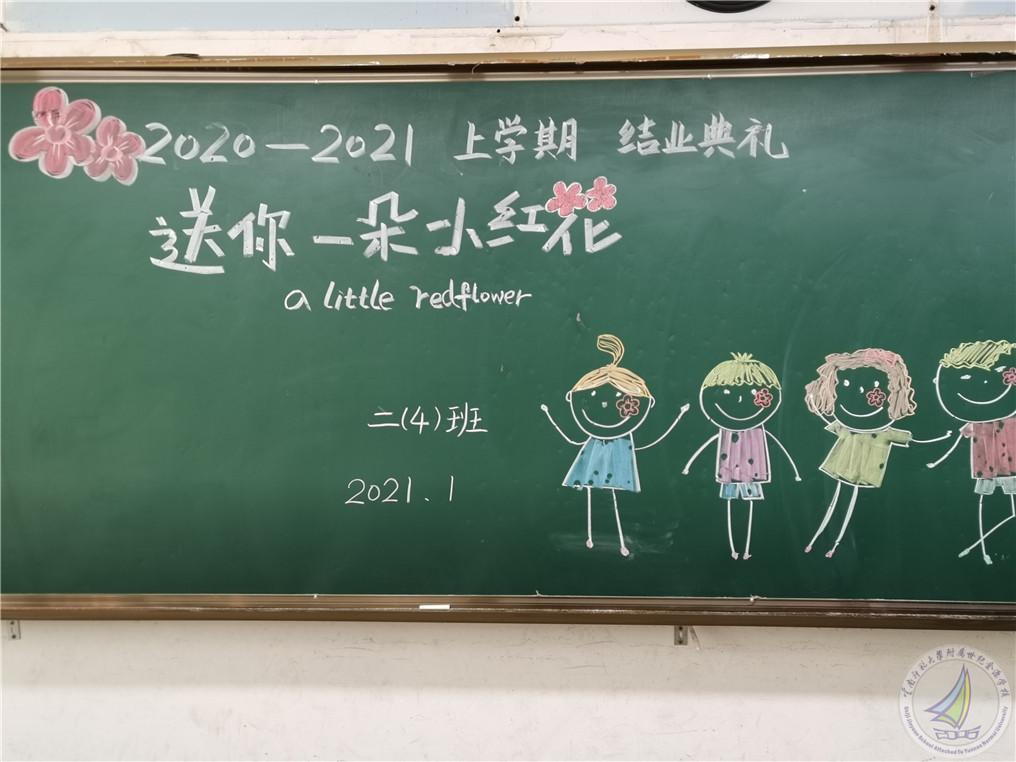 2020—2021 上学期 结业典礼
送你一朵小红花
a little redflower
二(4)班
2021.1
云南师范大學附属世纪金源学校
Shiji Jinyuan School Attached To Yunnan Normal University